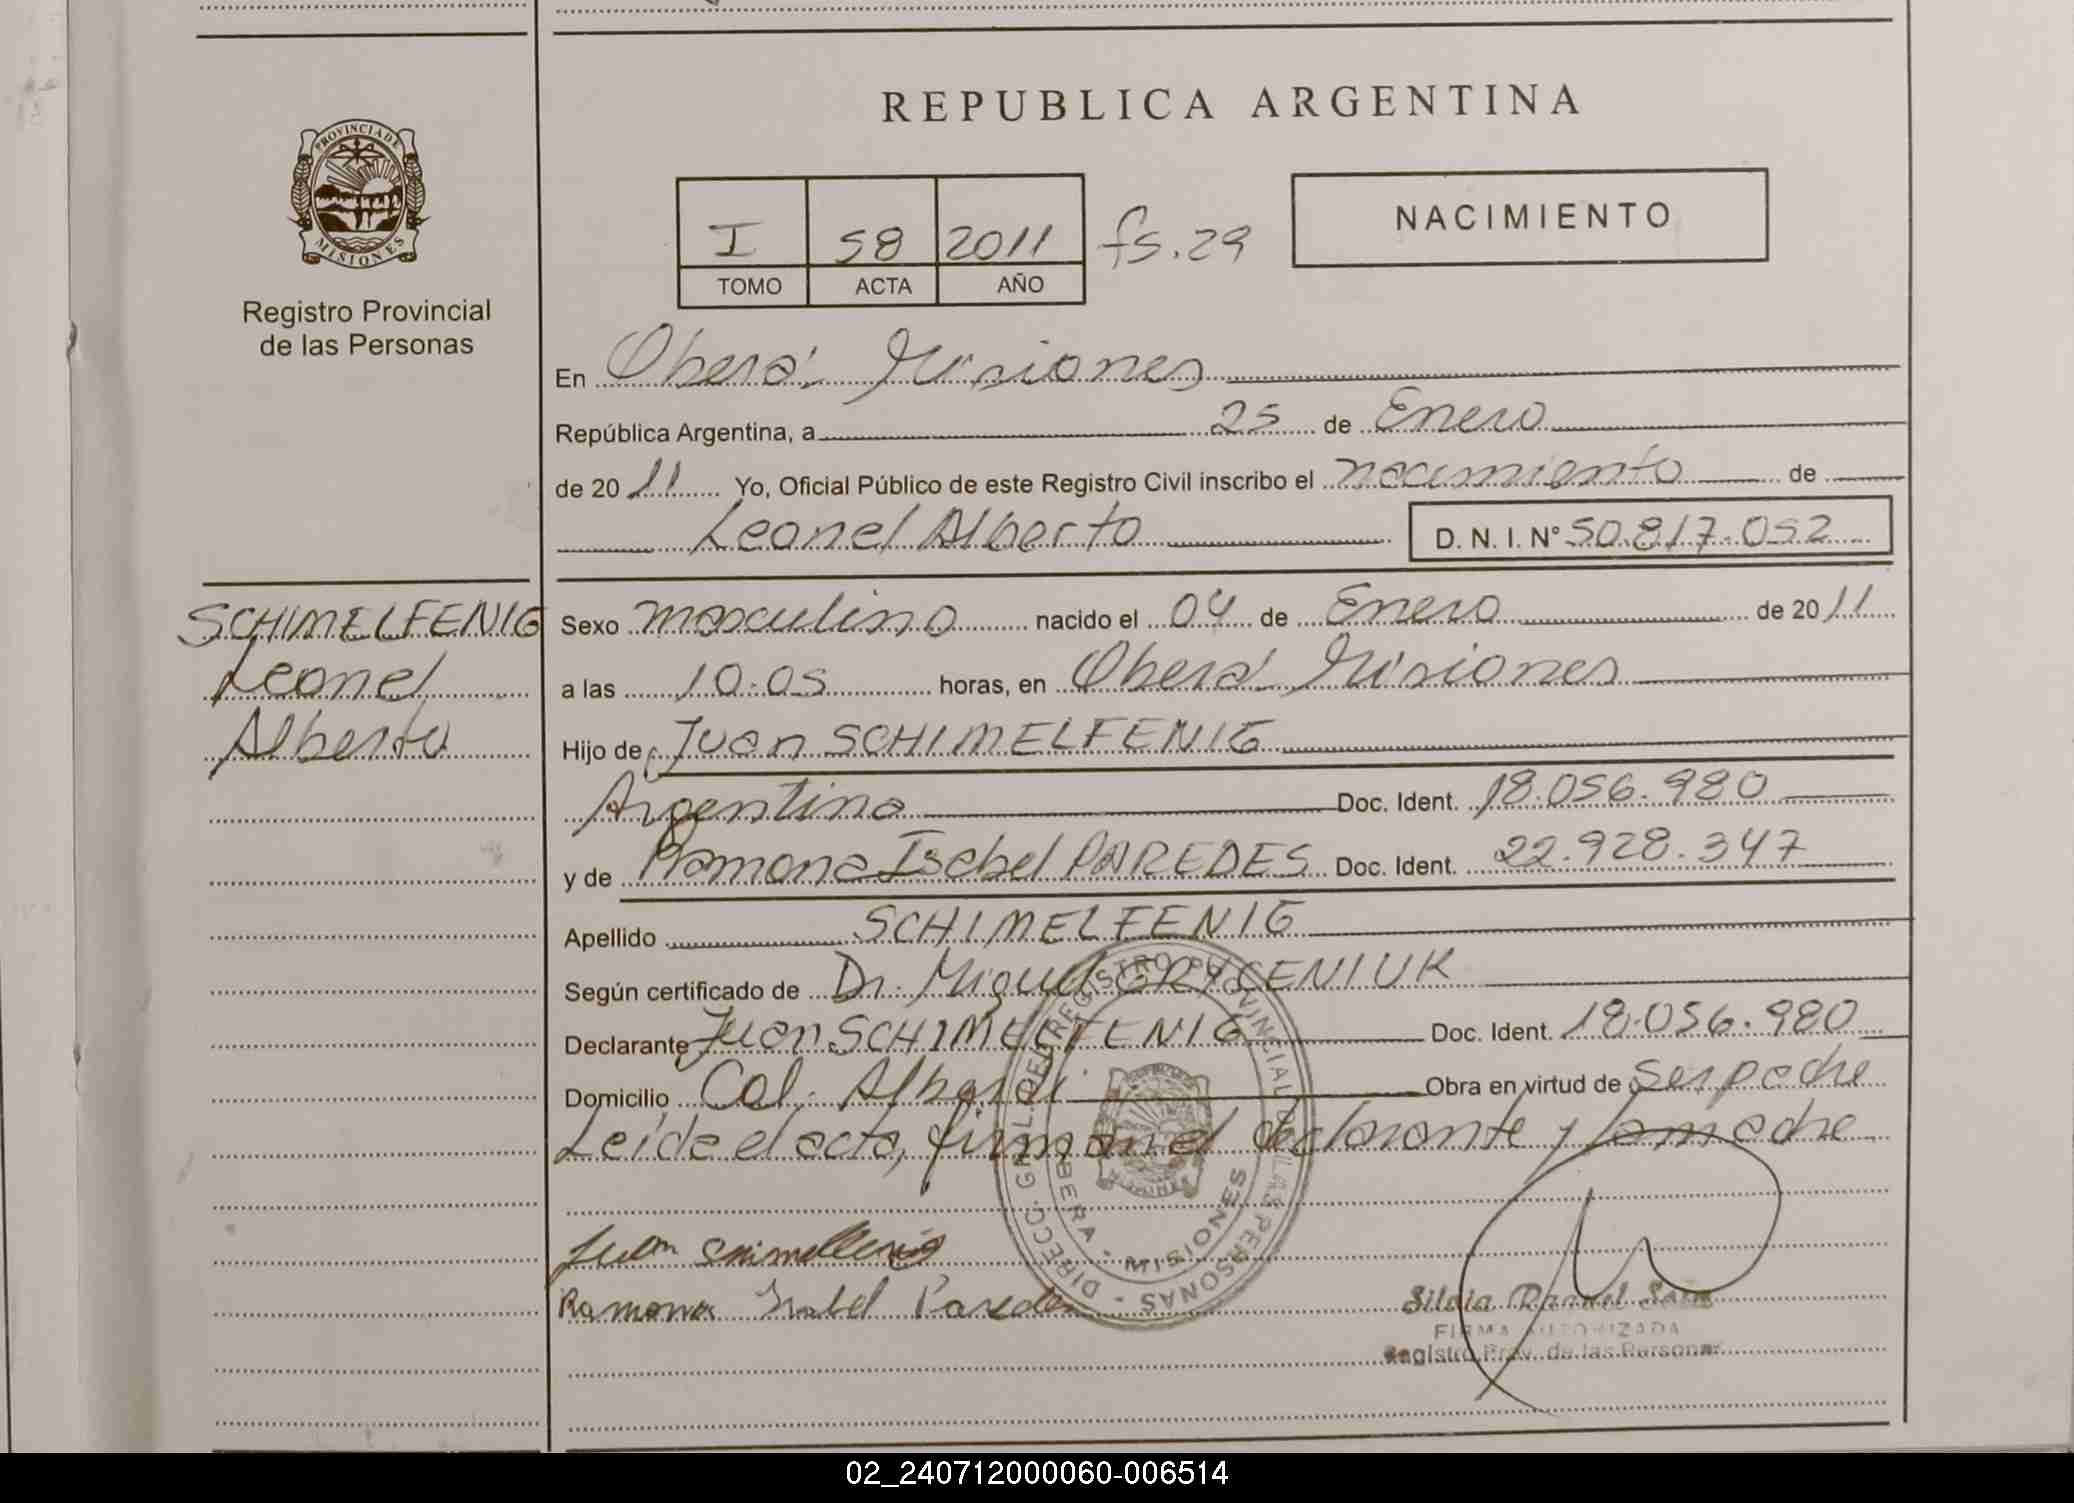 REPUBLICA ARGENTINA
PROVINCIA DE
MISIONES
Registro Provincial
de las Personas
I 58 2011 fs. 29
TOMO ACTA AÑO
NACIMIENTO
En Oberá Misiones
República Argentina, a 25 de Enero
de 20 11 Yo, Oficial Público de este Registro Civil inscribo el nacimiento de
Leonel Alberto D. N. I. N° 50.817.052
SCHIMELFENIG
Leonel
Alberto
Sexo masculino nacido el 04 de Enero de 20 11
a las 10.05 horas, en Oberá Misiones
Hijo de Juan SCHIMELFENIG
Argentina Doc. Ident. 18.056.980
y de Ramona Isabel PAREDES Doc. Ident. 22.928.347
Apellido SCHIMELFENIG
Según certificado de Dr. Miguel GRYCENIUK
Declarante Juan SCHIMELFENIG Doc. Ident. 18.056.980
Domicilio Col. Alberdi Obra en virtud de Ser padre
Leída el acta, firman el declarante y la madre
DIRECC. GRAL. DEL REGISTRO PROVINCIAL DE LAS PERSONAS
OBERA - MISIONES
Juan
Ramona Isabel Paredes
Silvia
FIRMA AUTORIZADA
Registro Prov. de las Personas
02_240712000060-006514